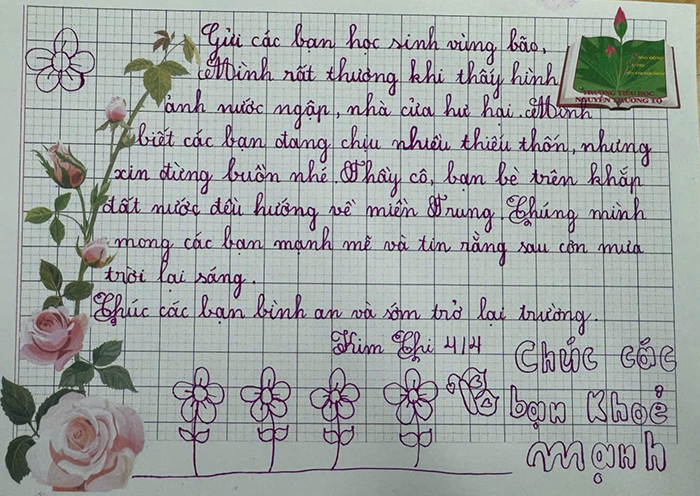 Gửi các bạn học sinh vùng bão,
Mình rất thương khi thấy hình
ảnh nước ngập, nhà cửa hư hại. Mình
biết các bạn đang chịu nhiều thiếu thốn, nhưng
xin đừng buồn nhé. Thầy cô, bạn bè trên khắp
đất nước đều hướng về miền Trung. Chúng mình
mong các bạn mạnh mẽ và tin rằng sau cơn mưa
trời lại sáng.
Chúc các bạn bình an và sớm trở lại trường.
Kim Chi 4/4
Chúc các
bạn khoẻ
mạnh
TRƯỜNG TIỂU HỌC
NGUYỄN TRƯỜNG TỘ